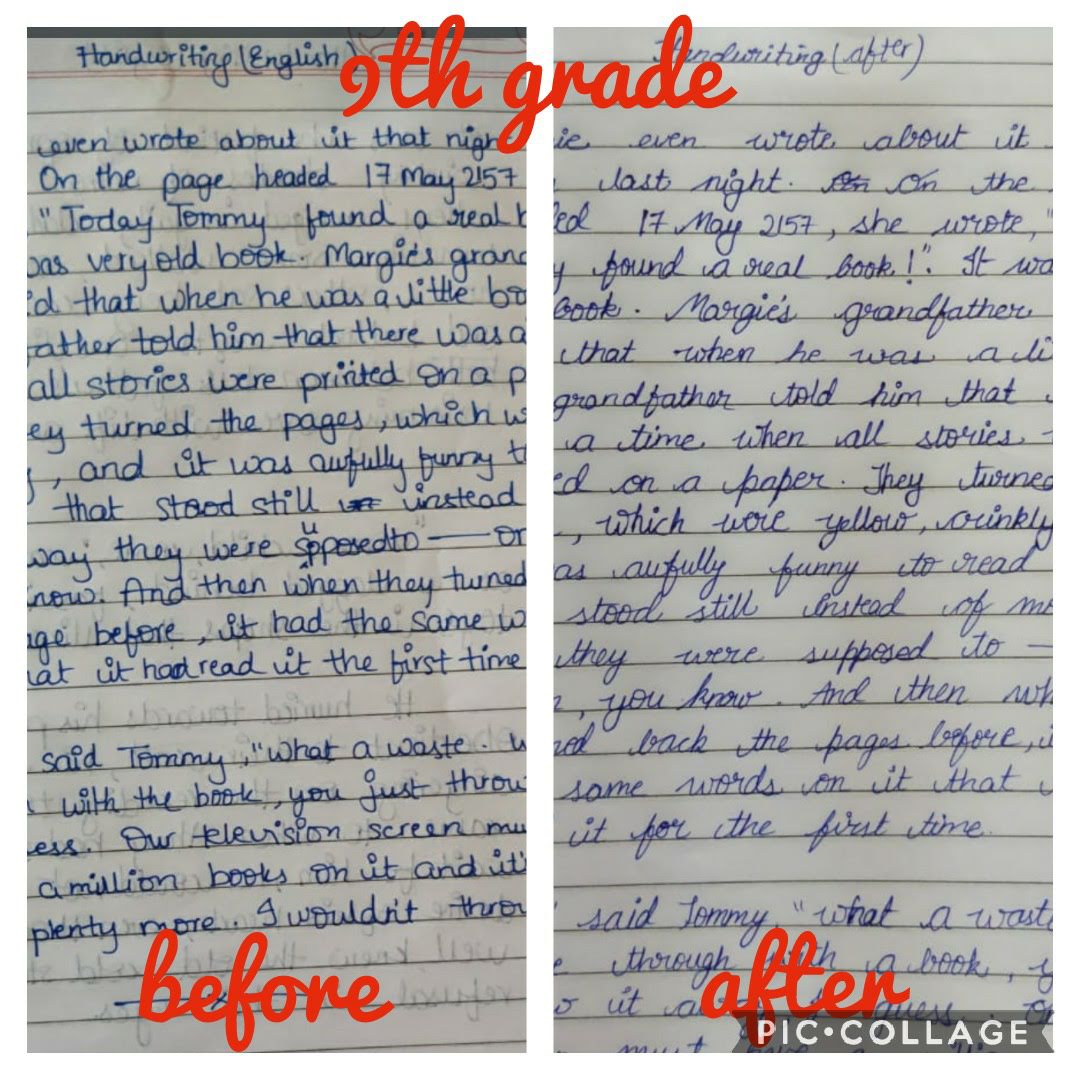 9th grade
Handwriting (English)
even wrote about it that nigh
On the page headed 17 May 2157
"Today Tommy found a real b
was very old book. Margie's grand
'd that when he was a little bo
ather told him that there was a
all stories were printed on a p
ey turned the pages, which w
, and it was awfully funny t
that stood still instead
way they were supposed to — on
now. And then when they turned
age before, it had the same w
at it had read it the first time
said Tommy, "what a waste. W
with the book, you just throw
ess. Our television screen mu
a million books on it and it
plenty more. I wouldn't throw
before
Handwriting (after)
ie even wrote about it
last night. On the
ed 17 May 2157, she wrote, "
y found a real book!". It wa
book. Margie's grandfather
that when he was a li
grandfather told him that
a time when all stories
ed on a paper. They turned
, which were yellow, crinkly
as awfully funny to read
stood still instead of mo
they were supposed to —
n, you know. And then wh
ned back the pages before, i
same words on it that
it for the first time.
said Tommy, "what a wast
e through with a book, y
w it guess. Ou
must
after
PIC•COLLAGE